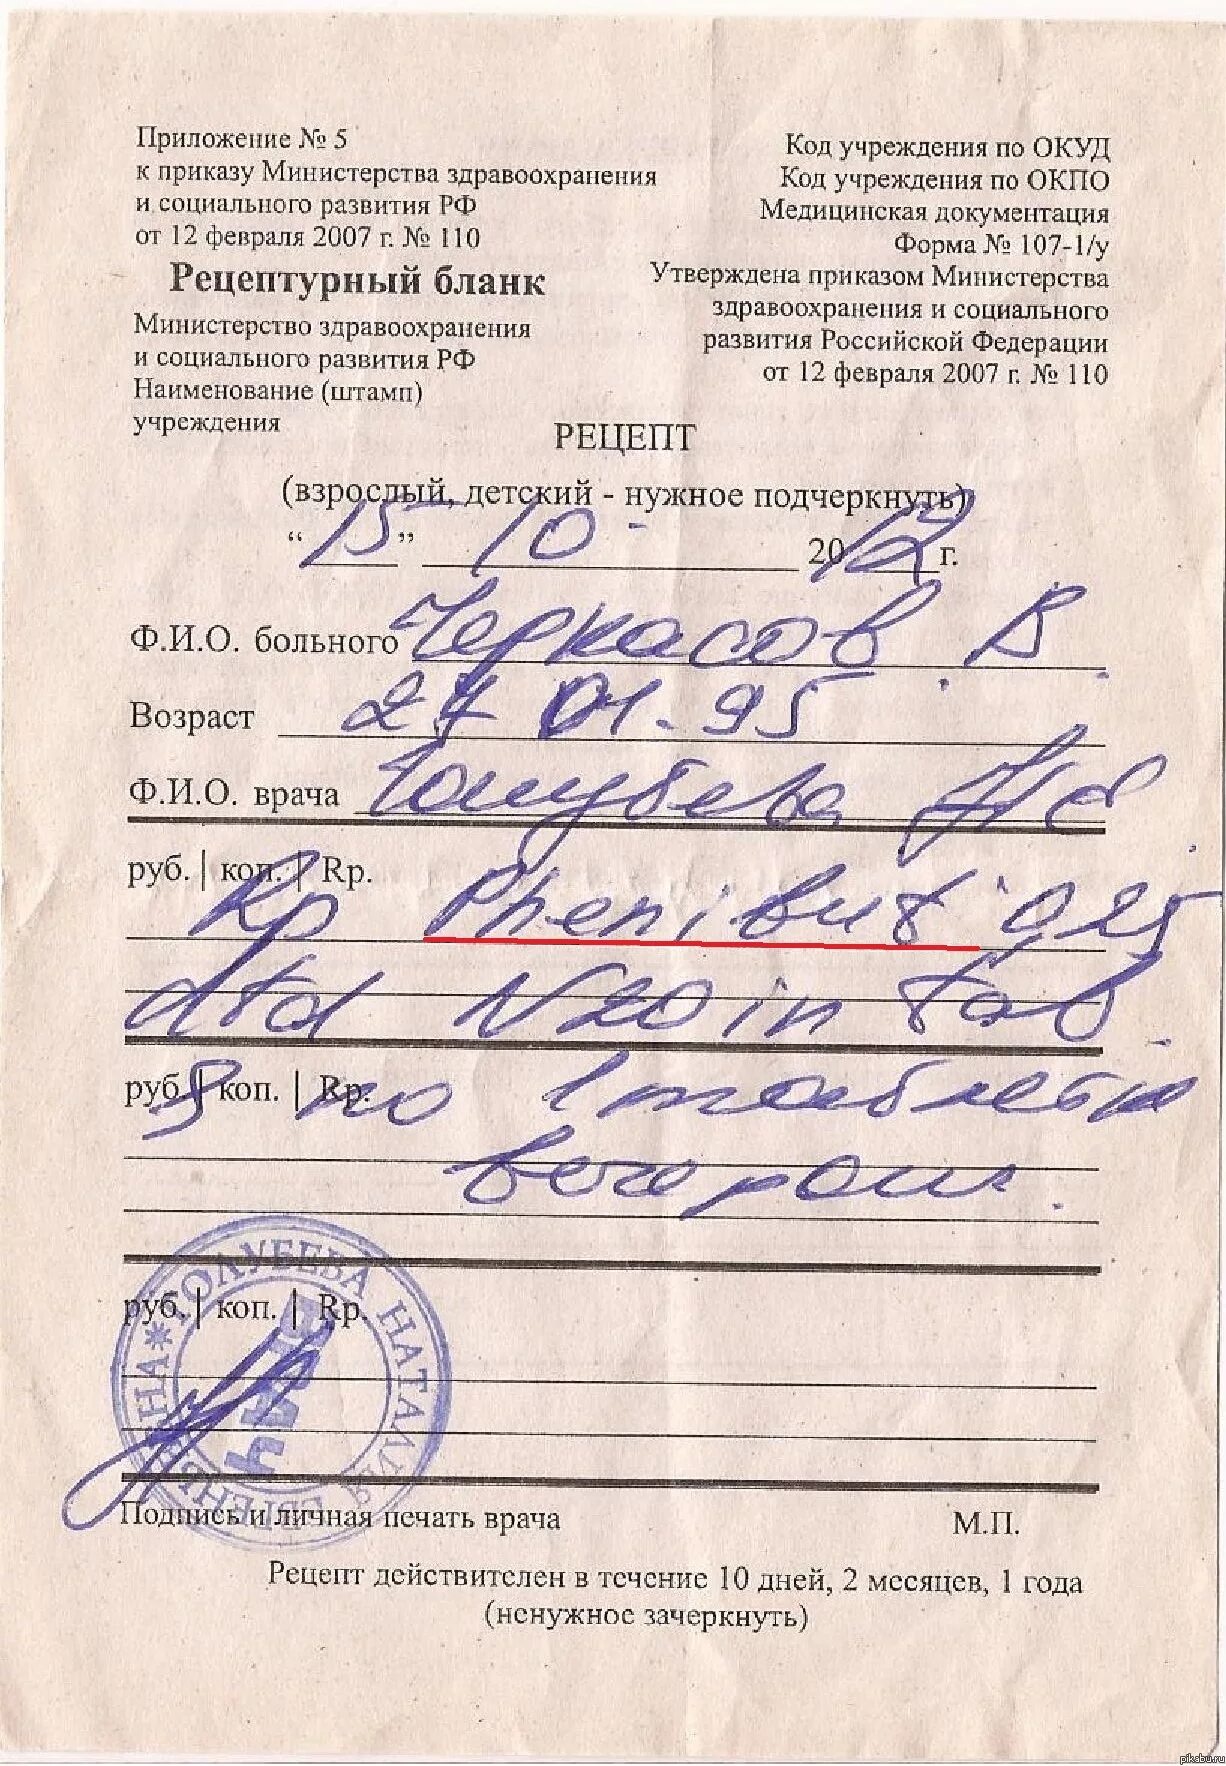 Приложение № 5
к приказу Министерства здравоохранения
и социального развития РФ
от 12 февраля 2007 г. № 110
Рецептурный бланк
Министерство здравоохранения
и социального развития РФ
Наименование (штамп)
учреждения
Код учреждения по ОКУД
Код учреждения по ОКПО
Медицинская документация
Форма № 107-1/у
Утверждена приказом Министерства
здравоохранения и социального
развития Российской Федерации
от 12 февраля 2007 г. № 110
РЕЦЕПТ
(взрослый, детский - нужное подчеркнуть)
“ 15 ” 10 2012 г.
Ф.И.О. больного Черкасов В.
Возраст 27.01.95
Ф.И.О. врача Голубева НЕ
руб. | коп. | Rp.
Rp Phenibut 0.25
dtd N20 in tab.
руб. | коп. | Rp.
S по 1 таблетке
вечером.
руб. | коп. | Rp.
ГОЛУБЕВА НАТАЛИЯ ЕВГЕНЬЕВНА
ВРАЧ
Подпись и личная печать врача
М.П.
Рецепт действителен в течение 10 дней, 2 месяцев, 1 года
(ненужное зачеркнуть)
pikabu.ru